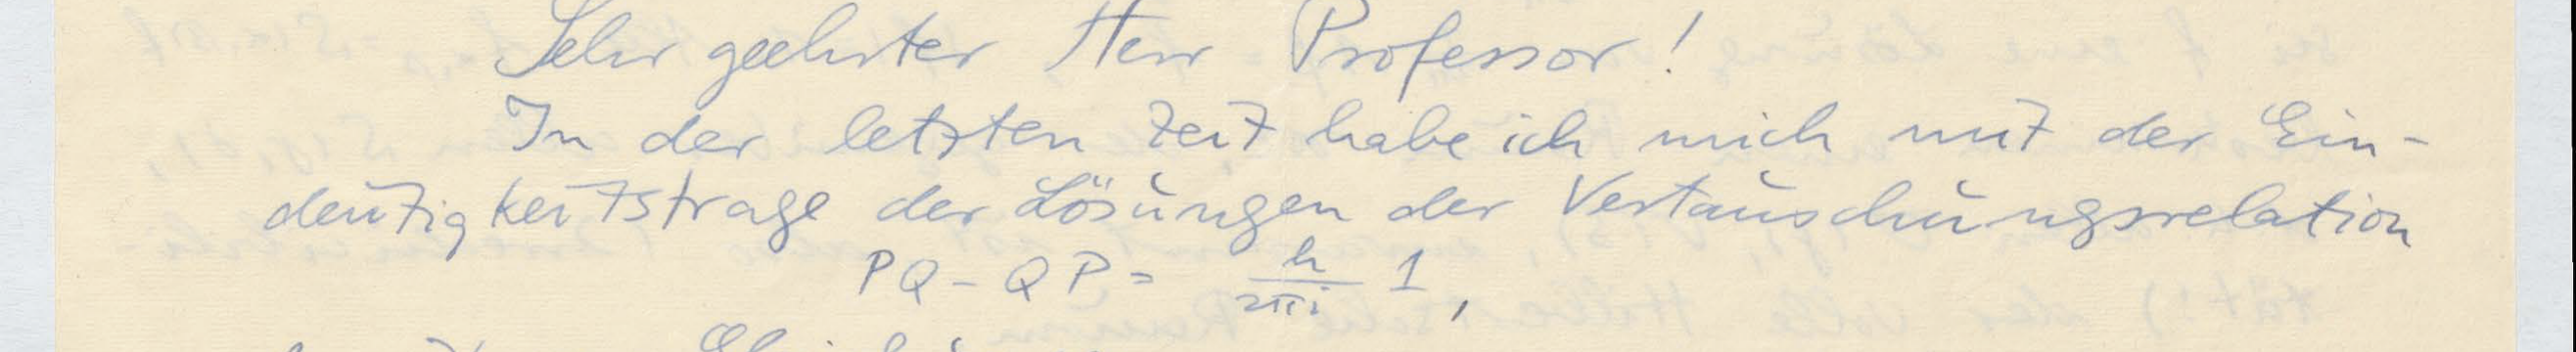 Sehr geehrter Herr Professor!
In der letzten Zeit habe ich mich mit der Ein-
deutigkeitsfrage der Lösungen der Vertauschungsrelation
PQ - QP = h/2πi 1,